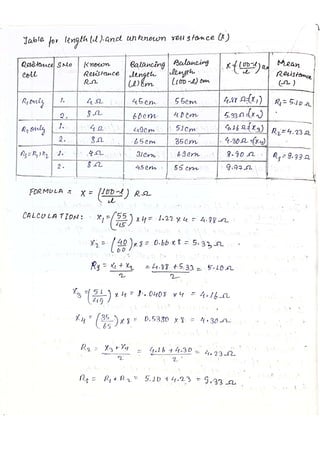 Table for length (l) and unknown resistance (R)
Resistance Coil | S.No | Known Resistance R Ω | Balancing length (l) cm | Balancing length (100-l) cm | X = (100-l / l) R Ω | Mean Resistance (Ω)
R1 only | 1. | 4Ω | 45cm | 55cm | 4.88 Ω = (X1) | R1 = 5.10 Ω
2. | 8Ω | 60cm | 40cm | 5.33 Ω = (X2)
R2 only | 1. | 4Ω | 49cm | 51cm | 4.16 Ω (X3) | R2 = 4.23 Ω
2. | 8Ω | 65cm | 35cm | 4.30 Ω = (X4)
1. | 4Ω | 31cm | 69cm | 8.90 Ω
2. | 8Ω | 45cm | 55cm
FORMULA = X = (100-l / l) R Ω
CALCULATION: X1 = (55/45) x 4 = 1.22 x 4 = 4.88 Ω
X2 = (40/60) x 8 = 0.66 x 8 = 5.33 Ω
= X1 + X2 / 2 = 4.88 + 5.33 / 2 = 5.10 Ω
X3 = (51/49) x 4 = 1.0408 x 4 = 4.16 Ω
X4 = (35/65) x 8 = 0.5380 x 8 = 4.30 Ω
R2 = X3 + X4 / 2 = 4.16 + 4.30 / 2 = 4.23 Ω
= R1 + R2 = 5.10 + 4.23 = 9.33 Ω